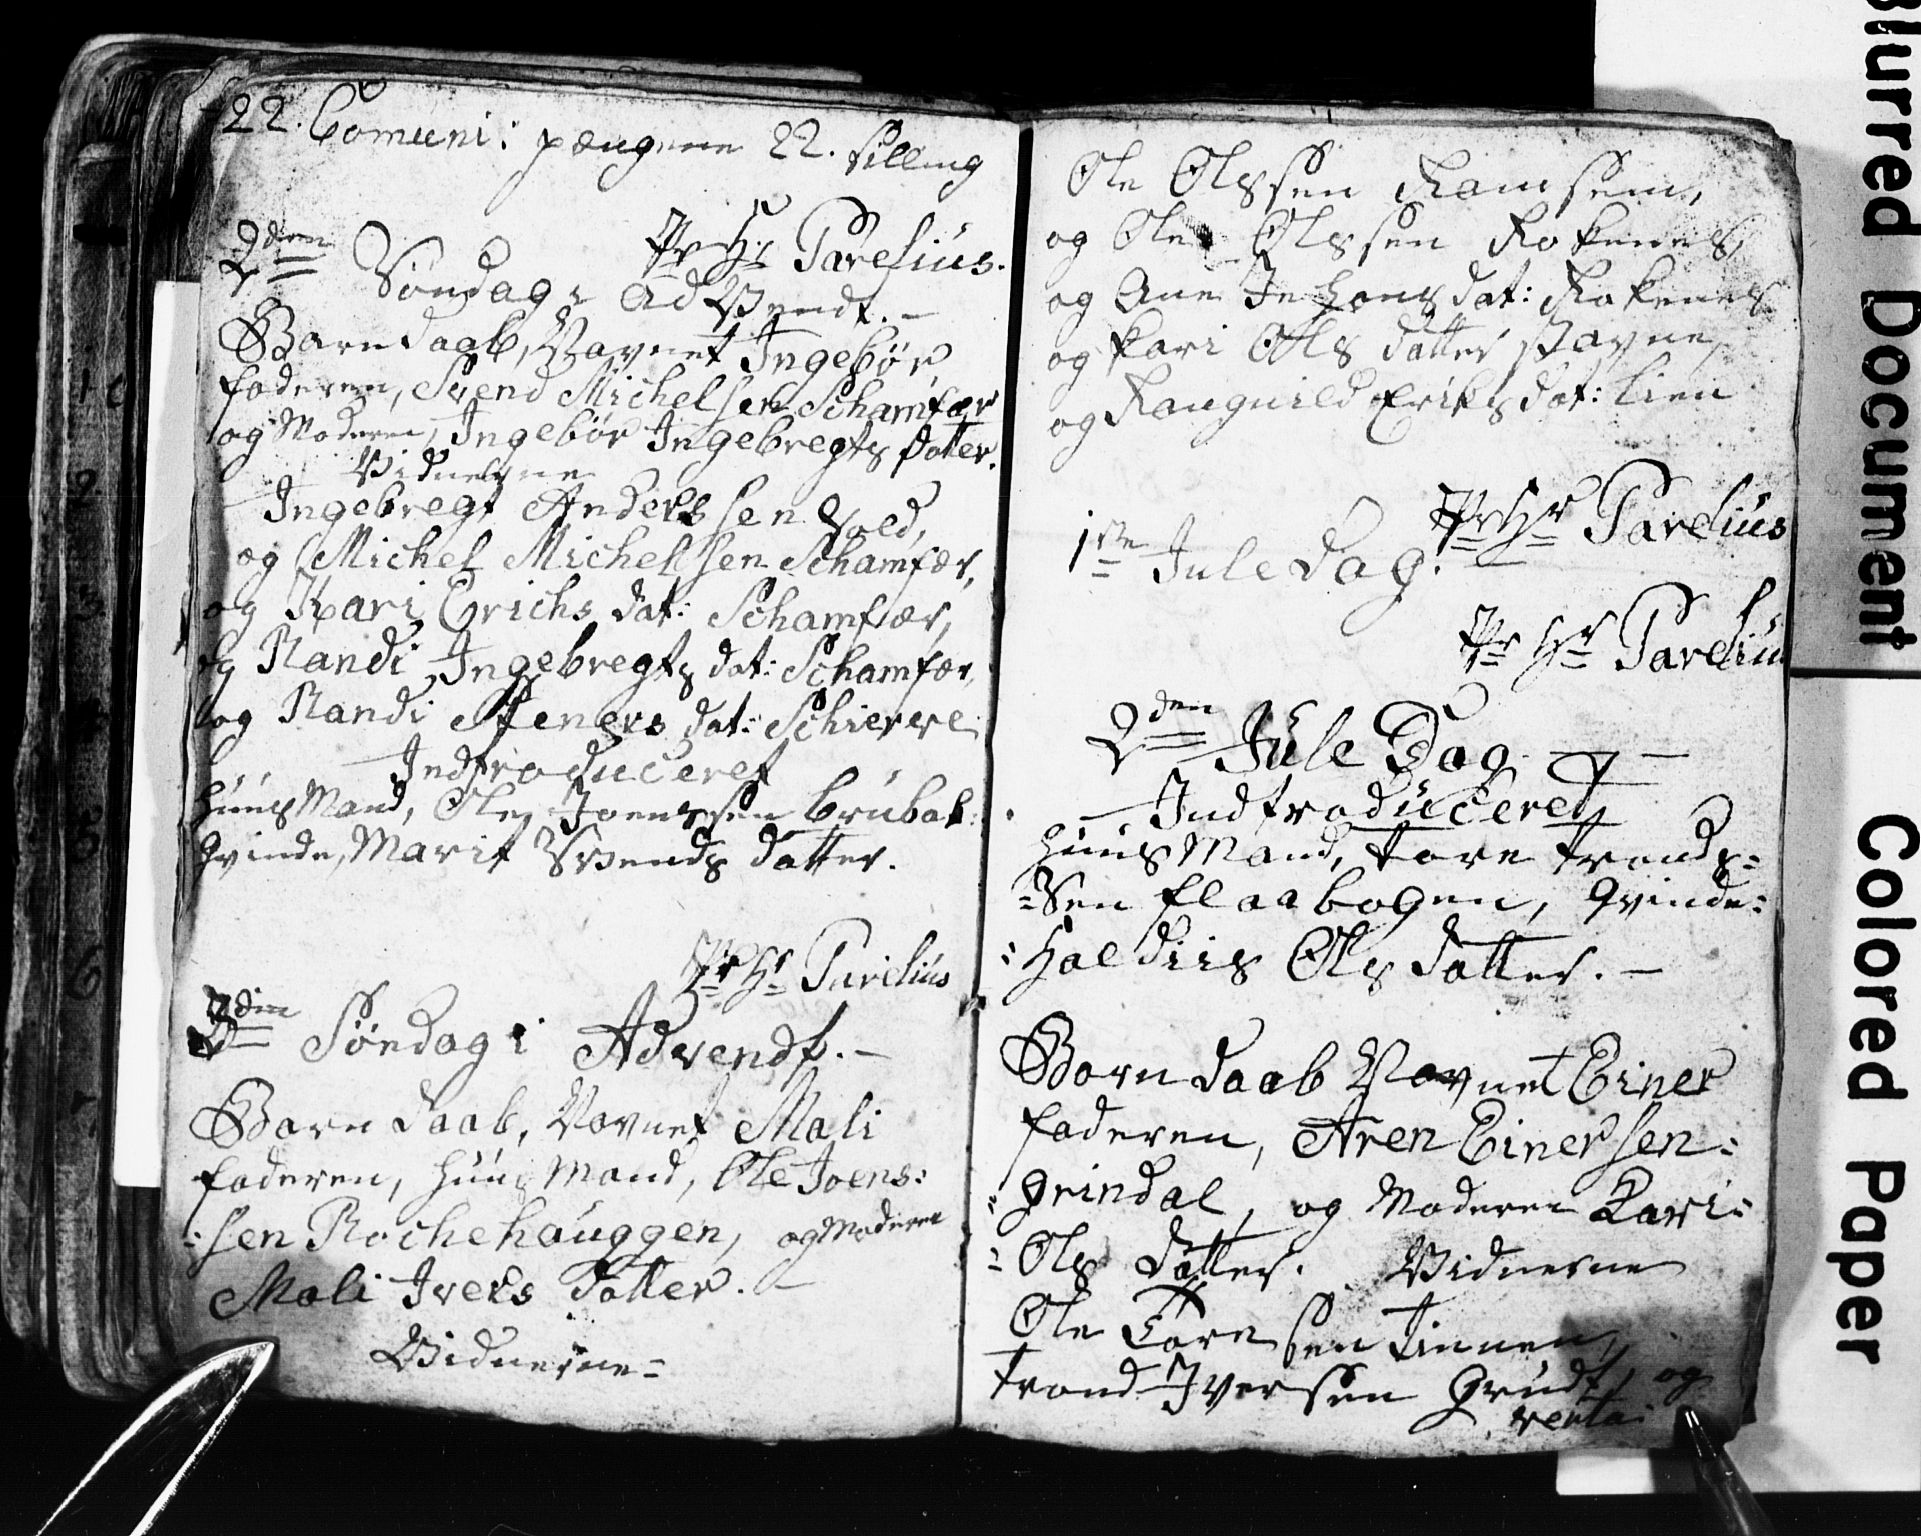 22. Comuni: pengene 22. silling
Pr Hr Parelius.
2den Søndag i AdVendt. -
Barn daab, Navnet Ingebør
faderen, Svend Michelsen Schamfær
og Moderen, Ingebør Ingebregts doter.
Vidnerne
Ingebregt Anderssen Vold,
og Michel Michelsen Schamfær,
og Kari Erichs dat: Schamfær,
og Randi Ingebregts dat: Schamfær,
og Randi Steners dat: Schierve
Indtroduceret
Huus Mand, Ole Joenssen brubak:
Qvinde, Marit Svends datter.
Pr Hr Parelius
3den Søndag i Advendt. -
Barn daab, Navnet Mali
faderen, Huus Mand, Ole Joens:
:sen Rochehauggen, og Moderen
Mali Ivers Datter. -
Vidnerne=
Ole Olssen Ramsem,
og Ole Olssen Rokenes,
og Ane Jehans dat: Rokenes
og Kari Ols datter Stavne,
og Ranguild Eriks dat: Lien
Pr Hr Parelius
1ste Jule Dag.
Pr Hr Parelius
2den Jule Dag. -
Indtroduceret
Huus Mand, Tore Tronds=
=Sen flaabogen, Qvinde:
:Haldiis Ols datter. -
Barn daab Navnet Einer
faderen, Aren Einersen:
:Grindal, og Moderen Kari:
:Ols datter. Vidnerne
Ole Toresen Tinnen,
Trond Iversen Grudt, og
venta:
Blurred Document
Colored Paper